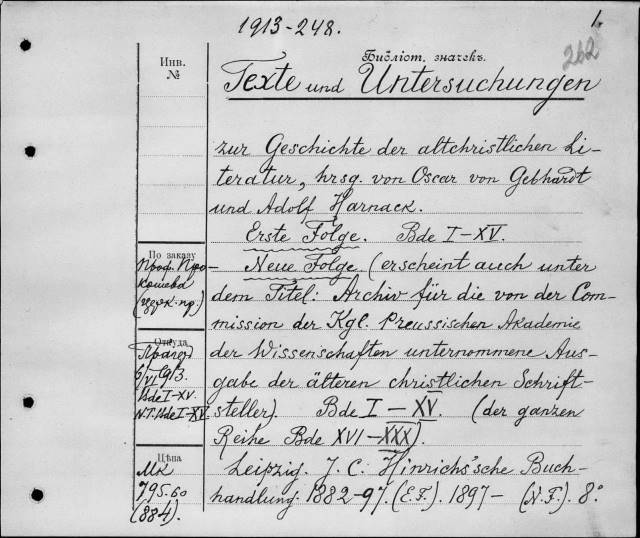 1913-248.
1.
262
Инв.
№
Библіот. значекъ.
Texte und Untersuchungen
zur Geschichte der altchristlichen Li-
teratur, hrsg. von Oscar von Gebhardt
und Adolf Harnack.
Erste Folge. Bde I-XV.
По заказу
Проф. Про-
кошева
(церк. пр.)
Neue Folge (erscheint auch unter
dem Titel: Archiv für die von der Com-
mission der Kgl. Preussischen Akademie
der Wissenschaften unternommene Aus-
gabe der älteren christlichen Schrift-
steller). Bde I-XV. (der ganzen
Reihe Bde XVI-XXX).
Откуда
6/VI 1913.
Bde I-XV.
N.F. Bde I-XV
Цѣна
Mk
795.60
(884).
Leipzig. J. C. Hinrichs'sche Buch-
handlung. 1882-97. (E.F.). 1897- (N.F.). 8°